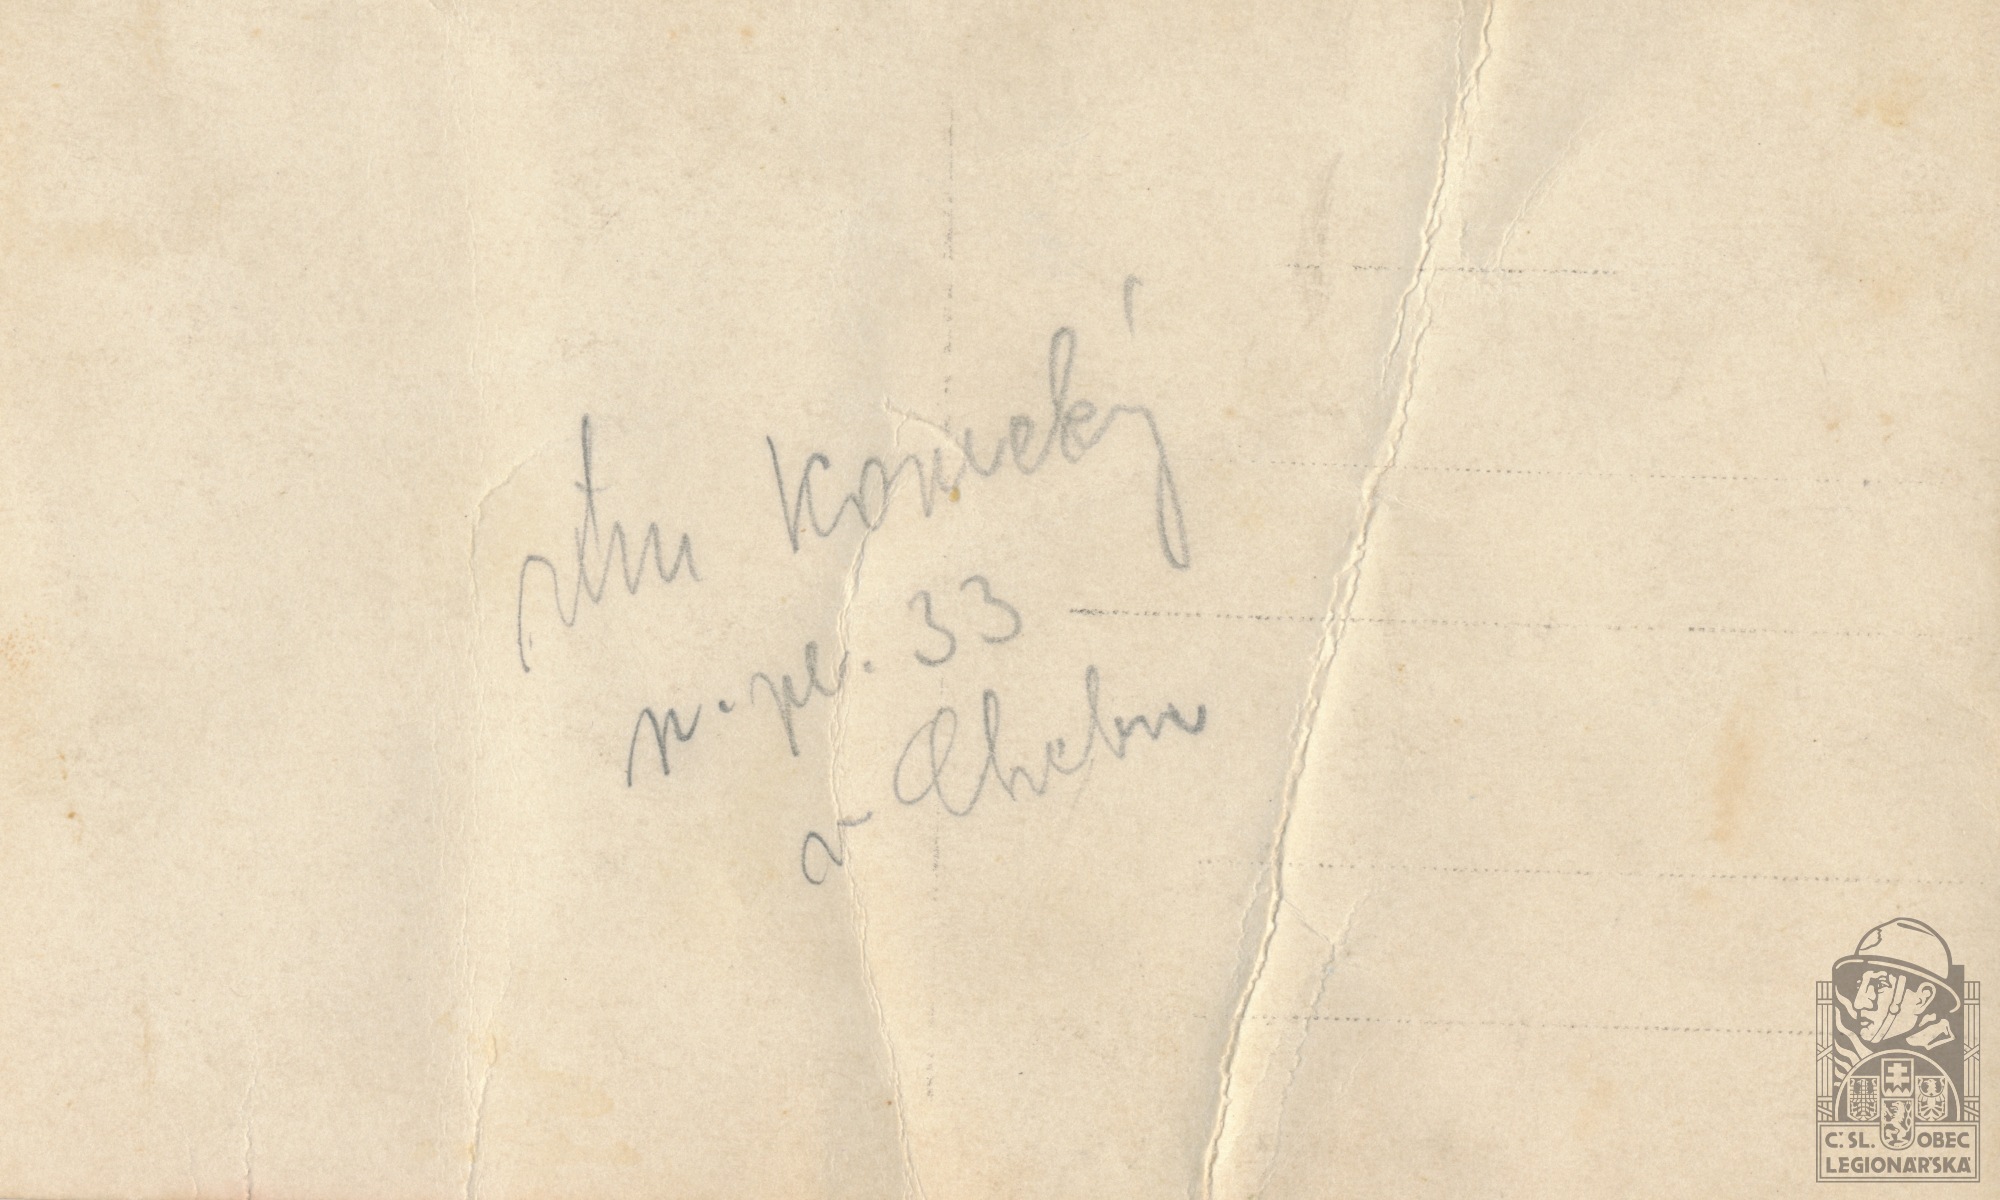 rtm Konický
p. pl. 33
v Chebu
Č. SL. OBEC
LEGIONÁŘSKÁ